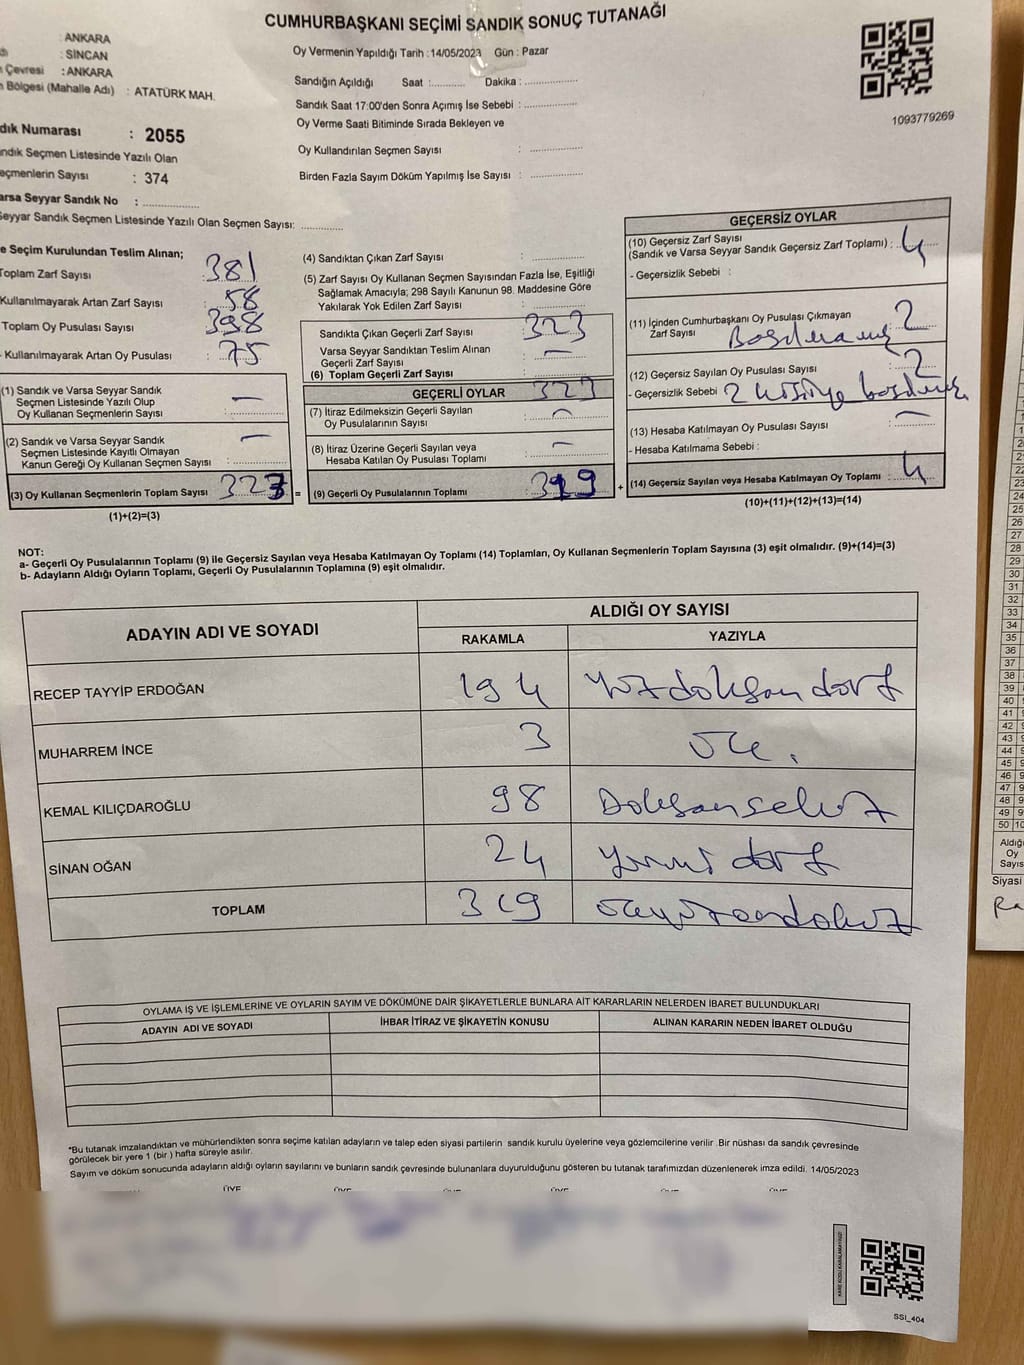 CUMHURBAŞKANI SEÇİMİ SANDIK SONUÇ TUTANAĞI
: ANKARA
: SİNCAN
Çevresi : ANKARA
Bölgesi (Mahalle Adı) : ATATÜRK MAH.
Numarası : 2055
Seçmen Listesinde Yazılı Olan
Sayısı : 374
Seyyar Sandık No :
Seyyar Sandık Seçmen Listesinde Yazılı Olan Seçmen Sayısı:
Oy Vermenin Yapıldığı Tarih : 14/05/2023 Gün : Pazar
Sandığın Açıldığı Saat : Dakika :
Sandık Saat 17:00'den Sonra Açımış İse Sebebi :
Oy Verme Saati Bitiminde Sırada Bekleyen ve
Oy Kullandırılan Seçmen Sayısı :
Birden Fazla Sayım Döküm Yapılmış İse Sayısı :
1093779269
Seçim Kurulundan Teslim Alınan;
Toplam Zarf Sayısı : 381
Kullanılmayarak Artan Zarf Sayısı : 58
Toplam Oy Pusulası Sayısı : 398
- Kullanılmayarak Artan Oy Pusulası : 75
(1) Sandık ve Varsa Seyyar Sandık
Seçmen Listesinde Yazılı Olup
Oy Kullanan Seçmenlerin Sayısı : —
(2) Sandık ve Varsa Seyyar Sandık
Seçmen Listesinde Kayıtlı Olmayan
Kanun Gereği Oy Kullanan Seçmen Sayısı : —
(3) Oy Kullanan Seçmenlerin Toplam Sayısı : 323 =
(1)+(2)=(3)
(4) Sandıktan Çıkan Zarf Sayısı :
(5) Zarf Sayısı Oy Kullanan Seçmen Sayısından Fazla İse, Eşitliği
Sağlamak Amacıyla; 298 Sayılı Kanunun 98. Maddesine Göre
Yakılarak Yok Edilen Zarf Sayısı :
Sandıkta Çıkan Geçerli Zarf Sayısı : 323
Varsa Seyyar Sandıktan Teslim Alınan
Geçerli Zarf Sayısı : —
(6) Toplam Geçerli Zarf Sayısı : 323
GEÇERLİ OYLAR
(7) İtiraz Edilmeksizin Geçerli Sayılan
Oy Pusulalarının Sayısı : —
(8) İtiraz Üzerine Geçerli Sayılan veya
Hesaba Katılan Oy Pusulası Toplamı : —
(9) Geçerli Oy Pusulalarının Toplamı : 319 +
GEÇERSİZ OYLAR
(10) Geçersiz Zarf Sayısı
(Sandık ve Varsa Seyyar Sandık Geçersiz Zarf Toplamı) : 4
- Geçersizlik Sebebi :
(11) İçinden Cumhurbaşkanı Oy Pusulası Çıkmayan
Zarf Sayısı : 2
(12) Geçersiz Sayılan Oy Pusulası Sayısı : 2
- Geçersizlik Sebebi 2 kişiye
(13) Hesaba Katılmayan Oy Pusulası Sayısı : —
- Hesaba Katılmama Sebebi :
(14) Geçersiz Sayılan veya Hesaba Katılmayan Oy Toplamı : 4
(10)+(11)+(12)+(13)=(14)
NOT:
a- Geçerli Oy Pusulalarının Toplamı (9) ile Geçersiz Sayılan veya Hesaba Katılmayan Oy Toplamı (14) Toplamları, Oy Kullanan Seçmenlerin Toplam Sayısına (3) eşit olmalıdır. (9)+(14)=(3)
b- Adayların Aldığı Oyların Toplamı, Geçerli Oy Pusulalarının Toplamına (9) eşit olmalıdır.
ADAYIN ADI VE SOYADI ALDIĞI OY SAYISI
RAKAMLA YAZIYLA
RECEP TAYYİP ERDOĞAN 194 Yüzdoksandört
MUHARREM İNCE 3 Üç.
KEMAL KILIÇDAROĞLU 98 Doksansekiz
SİNAN OĞAN 24 Yirmi dört
TOPLAM 319 üçyüzondokuz
OYLAMA İŞ VE İŞLEMLERİNE VE OYLARIN SAYIM VE DÖKÜMÜNE DAİR ŞİKAYETLERLE BUNLARA AİT KARARLARIN NELERDEN İBARET BULUNDUKLARI
ADAYIN ADI VE SOYADI İHBAR İTİRAZ VE ŞİKAYETİN KONUSU ALINAN KARARIN NEDEN İBARET OLDUĞU
*Bu tutanak imzalandıktan ve mühürlendikten sonra seçime katılan adayların ve talep eden siyasi partilerin sandık kurulu üyelerine veya gözlemcilerine verilir .Bir nüshası da sandık çevresinde
görülecek bir yere 1 (bir ) hafta süreyle asılır.
Sayım ve döküm sonucunda adayların aldığı oyların sayılarını ve bunların sandık çevresinde bulunanlara duyurulduğunu gösteren bu tutanak tarafımızdan düzenlenerek imza edildi. 14/05/2023
SSI_404
28
29
30
31
32
33
34
35
36
37
38
39
40
41
42
43
44
45
46
47
48
49
50
Oy
Siyasi